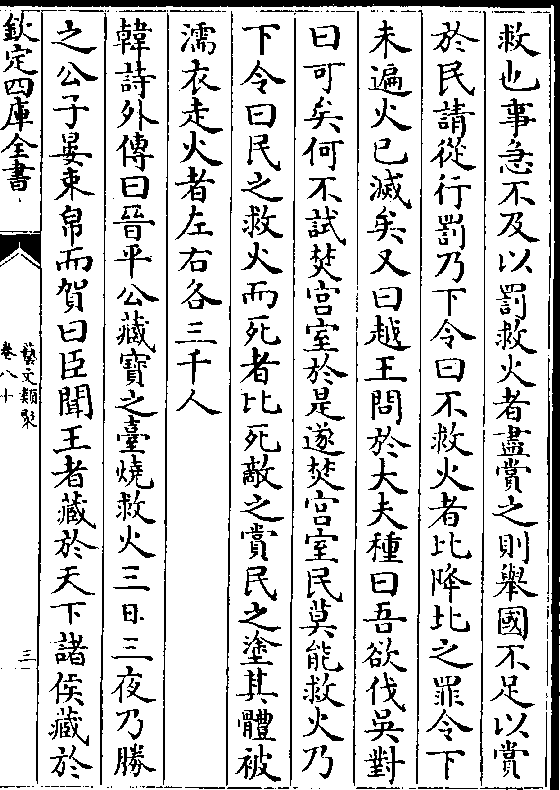 救也事急不及以罰救火者盡賞之則舉國不足以賞
於民請從行罰乃下令曰不救火者比降北之罪令下
未遍火已滅矣又曰越王問於大夫種曰吾欲伐吳對
曰可矣何不試焚宫室於是遂焚宫室民莫能救火乃
下令曰民之救火而死者比死敵之賞民之塗其體被
濡衣走火者左右各三千人
韓詩外傳曰晉平公藏寶之臺燒救火三日三夜乃勝
之公子晏束帛而賀曰臣聞王者藏於天下諸侯藏於
欽定四庫全書
藝文類聚
卷八十
三